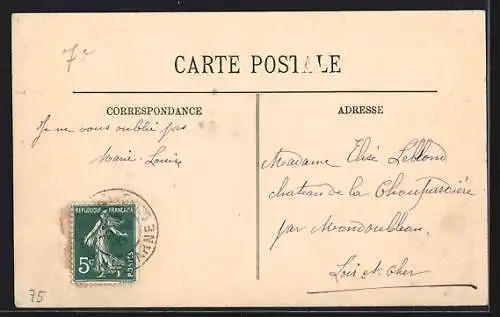 7e
CARTE POSTALE
CORRESPONDANCE
ADRESSE
Je ne vous oublie pas
Marie-Louise
Madame Elisé Leblond
chateau de la
par Mondoubleau
Loir et Cher
REPUBLIQUE FRANÇAISE
5c
POSTES
MARNE
75